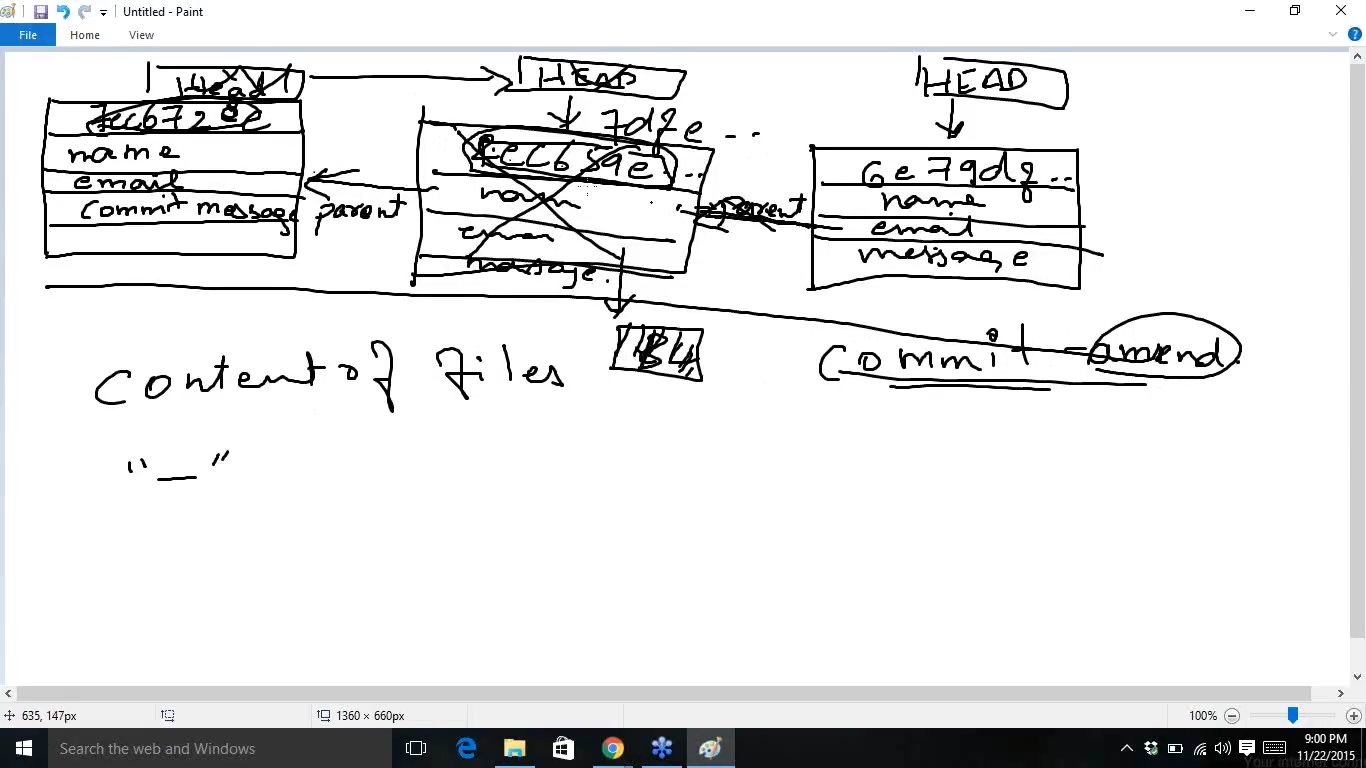 Untitled - Paint
File Home View
Head
HEAD
HEAD
7cc672
name
email
Commit message
parent
7dfe ...
name
email
message.
parent
6e79df...
name
email
message
content of files
Commit -amend.
" _ "
635, 147px
1360 × 660px
100%
Search the web and Windows
9:00 PM
11/22/2015